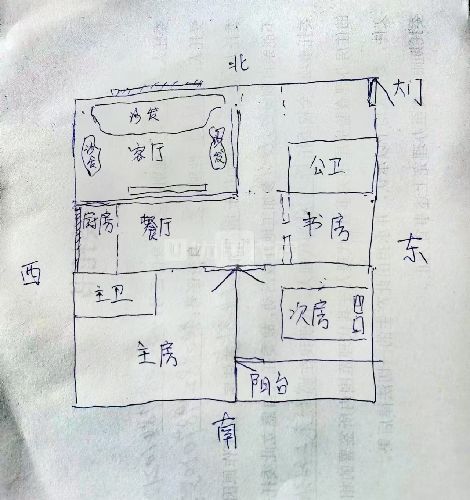 北
大门
沙发
沙发
客厅
沙发
公卫
厨房
餐厅
书房
东
西
主卫
次房
主房
阳台
南